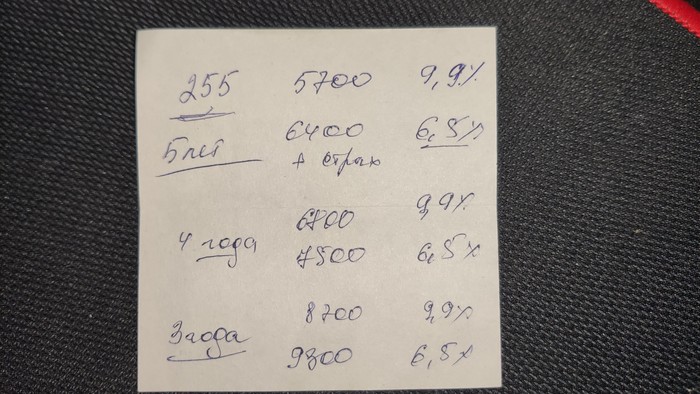 255 5700 9,9%
5 лет 6400 6,5%
+ страх
6800 9,9%
4 года 7500 6,5%
8700 9,9%
3 года 9300 6,5%